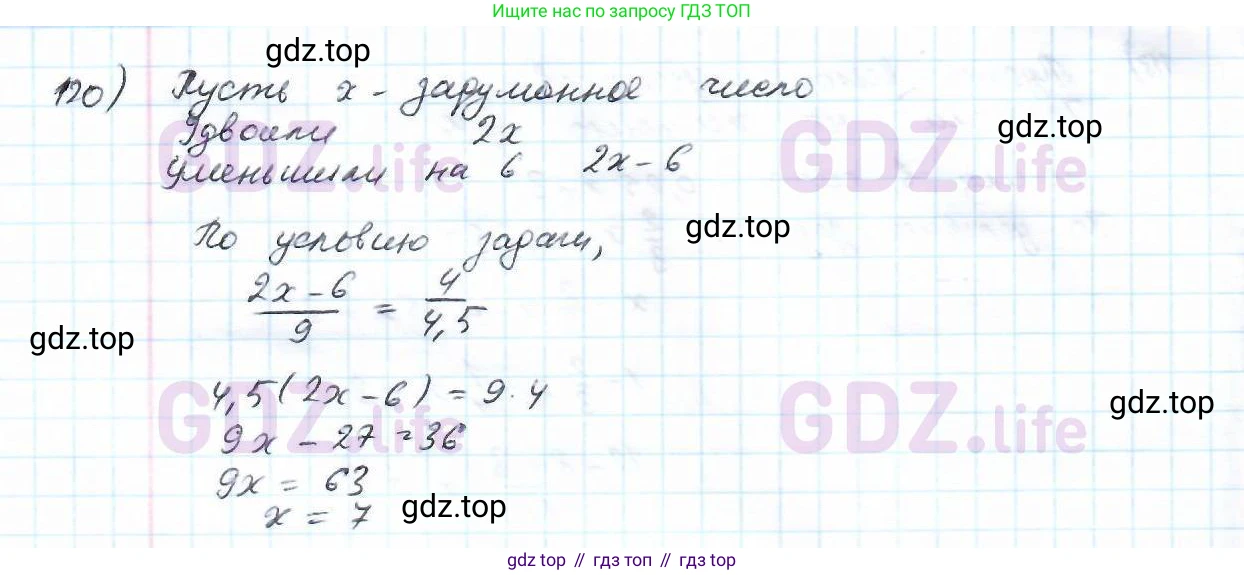 Ищите нас по запросу ГДЗ ТОП
gdz.top
120) Пусть x - задуманное число
Удвоили 2x
gdz.top
Уменьшили на 6 2x - 6
GDZ.life GDZ.life
По условию задачи,
gdz.top
2x - 6 / 9 = 4 / 4,5
gdz.top
4,5(2x - 6) = 9 · 4
gdz.top
GDZ.life GDZ.life
9x - 27 = 36
9x = 63
x = 7
gdz.top
gdz top // гдз топ // gdz.top